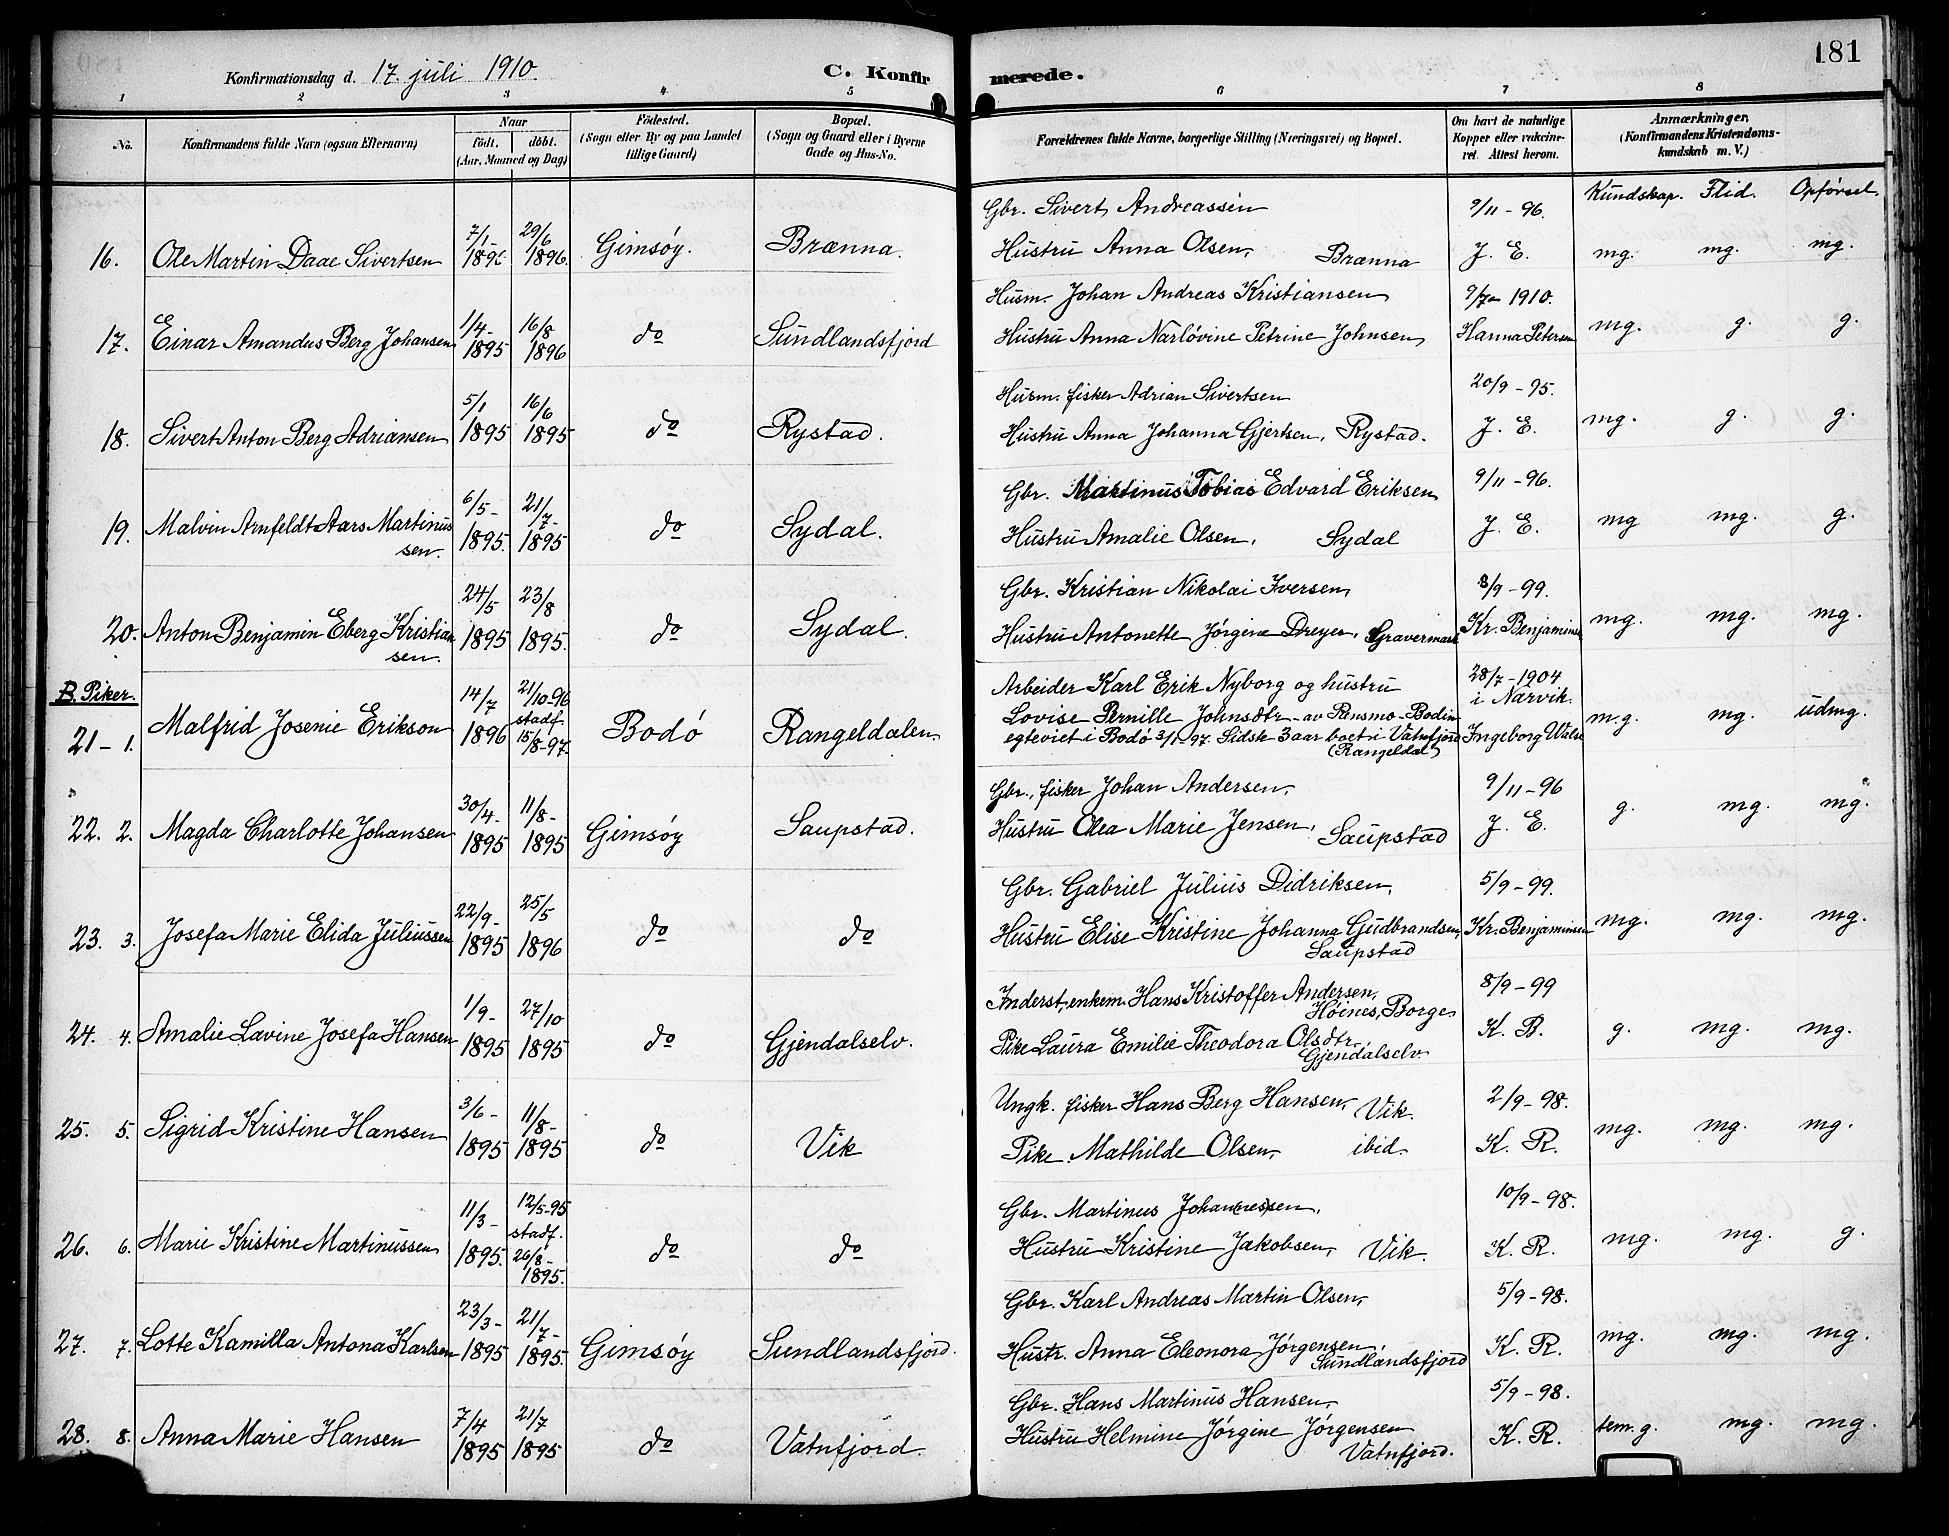 181
Konfirmationsdag d. 17. juli 1910.
C. Konfirmerede.
1 2 3 4 5 6 7 8
No.
Konfirmandens fulde Navn (ogsaa Efternavn)
Naar
født. døbt.
(Aar, Maaned og Dag)
Fødested.
(Sogn eller By og paa Landet
tillige Gaard)
Bopæl.
(Sogn og Gaard eller i Byerne
Gade og Hus-No.
Forældrenes fulde Navne, borgerlige Stilling (Næringsvei) og Bopæl.
Om havt de naturlige
Kopper eller vakcine-
ret. Attest herom.
Anmærkninger.
(Konfirmandens Kristendoms-
kundskab m. V.)
Kundskap. Flid. Opførsel.
16. Ole Martin Daae Sivertsen 7/1 1896 29/6 1896. Gimsøy. Brænna.
Gbr. Sivert Andreassen
Hustru Anna Olsen, Brænna
9/11-96.
J. E. mg. mg. mg.
17. Einar Amandus Berg Johansen 1/4- 1895 16/8 1896 do Sundlandsfjord
Husm. Johan Andreas Kristiansen
Hustru Anna Narløvine Petrine Johnsen,
9/7 1910.
Hanna Petersen mg. g. g.
18. Sivert Anton Berg Adriansen 5/1 1895 16/6 1895 do Rystad.
Husm. fisker Adrian Sivertsen
Hustru Anna Johanna Gjertsen, Rystad.
20/9-95.
J. E. mg. g. g.
19. Malvin Arnfeldt Aars Martinus
sen. 6/5- 1895. 21/7- 1895 do Sydal.
Gbr. Martinus Tobias Edvard Eriksen,
Hustru Amalie Olsen, Sydal
9/11-96.
J. E. mg mg. g.
20. Anton Benjamin Eberg Kristian
sen. 24/5 1895 23/8 1895. do Sydal.
Gbr. Kristian Nikolai Iversen,
Hustru Antonette Jørgine Dreyer, Gravermark
8/9-99.
Kr. Benjaminsen mg. mg. mg.
B. Piker.
21-1. Malfrid Josenie Erikson 14/7 1896 21/10-96 stadf. 15/8-97. Bodø Rangeldalen
Arbeider Karl Erik Nyborg og hustru
Lovise Pernille Johnsdtr - av Rensmo-Bodin
egteviet i Bodø 3/1-97. Sidsk 3 aar boet i Vatnfjord
(Rangeldal)
28/7-1904
i Narvik.
Ingeborg m.g. mg. udmg.
22. 2. Magda Charlotte Johansen 30/4- 1895 11/8- 1895 Gimsøy Saupstad.
Gbr., fisker Johan Andersen,
Hustru Olea Marie Jensen, Saupstad
9/11-96
J. E. g. mg. mg.
23. 3. Josefa Marie Elida Juliussen 22/9- 1895 25/5 1896 do do
Gbr. Gabriel Julius Didriksen,
Hustru Elise Kristine Johanna Gudbrandsen,
Saupstad
5/9-99.
Kr. Benjaminsen mg. mg. mg.
24. 4. Amalie Lavine Josefa Hansen 1/9- 1895 27/10 1895 do Gjendalselv.
Inderst, enkem. Hans Kristoffer Andersen,
Høines, Borge
Pike Laura Emilie Theodora Olsdtr,
Gjendalselv
8/9-99
K. B. g. mg. mg.
25. 5. Sigrid Kristine Hansen 3/6- 1895 11/8- 1895 do Vik
Ungk. fisker Hans Berg Hansen, Vik.
Pike Mathilde Olsen, ibid.
2/9-98.
K. R. mg. mg. mg.
26. 6. Marie Kristine Martinussen 11/3- 1895. 12/5-95 stadf. 26/8- 1895. do do
Gbr. Martinus Johannessen,
Hustru Kristine Jakobsen, Vik.
10/9-98.
K. R. mg. mg. g.
27. 7. Lotte Kamilla Antona Karlsen 23/3- 1895 21/7- 1895. Gimsøy Sundlandsfjord.
Gbr. Karl Andreas Martin Olsen,
Hustr. Anna Eleonora Jørgensen,
Sundlandsfjord
5/9-98.
K. R. mg. mg. mg.
28. 8. Anna Marie Hansen 7/4 1895 21/7 1895 do Vatnfjord.
Gbr. Hans Martinus Hansen,
Hustru Helmine Jørgine Jørgensen
Vatnfjord.
5/9-98.
K. R. tem. g. mg. mg.